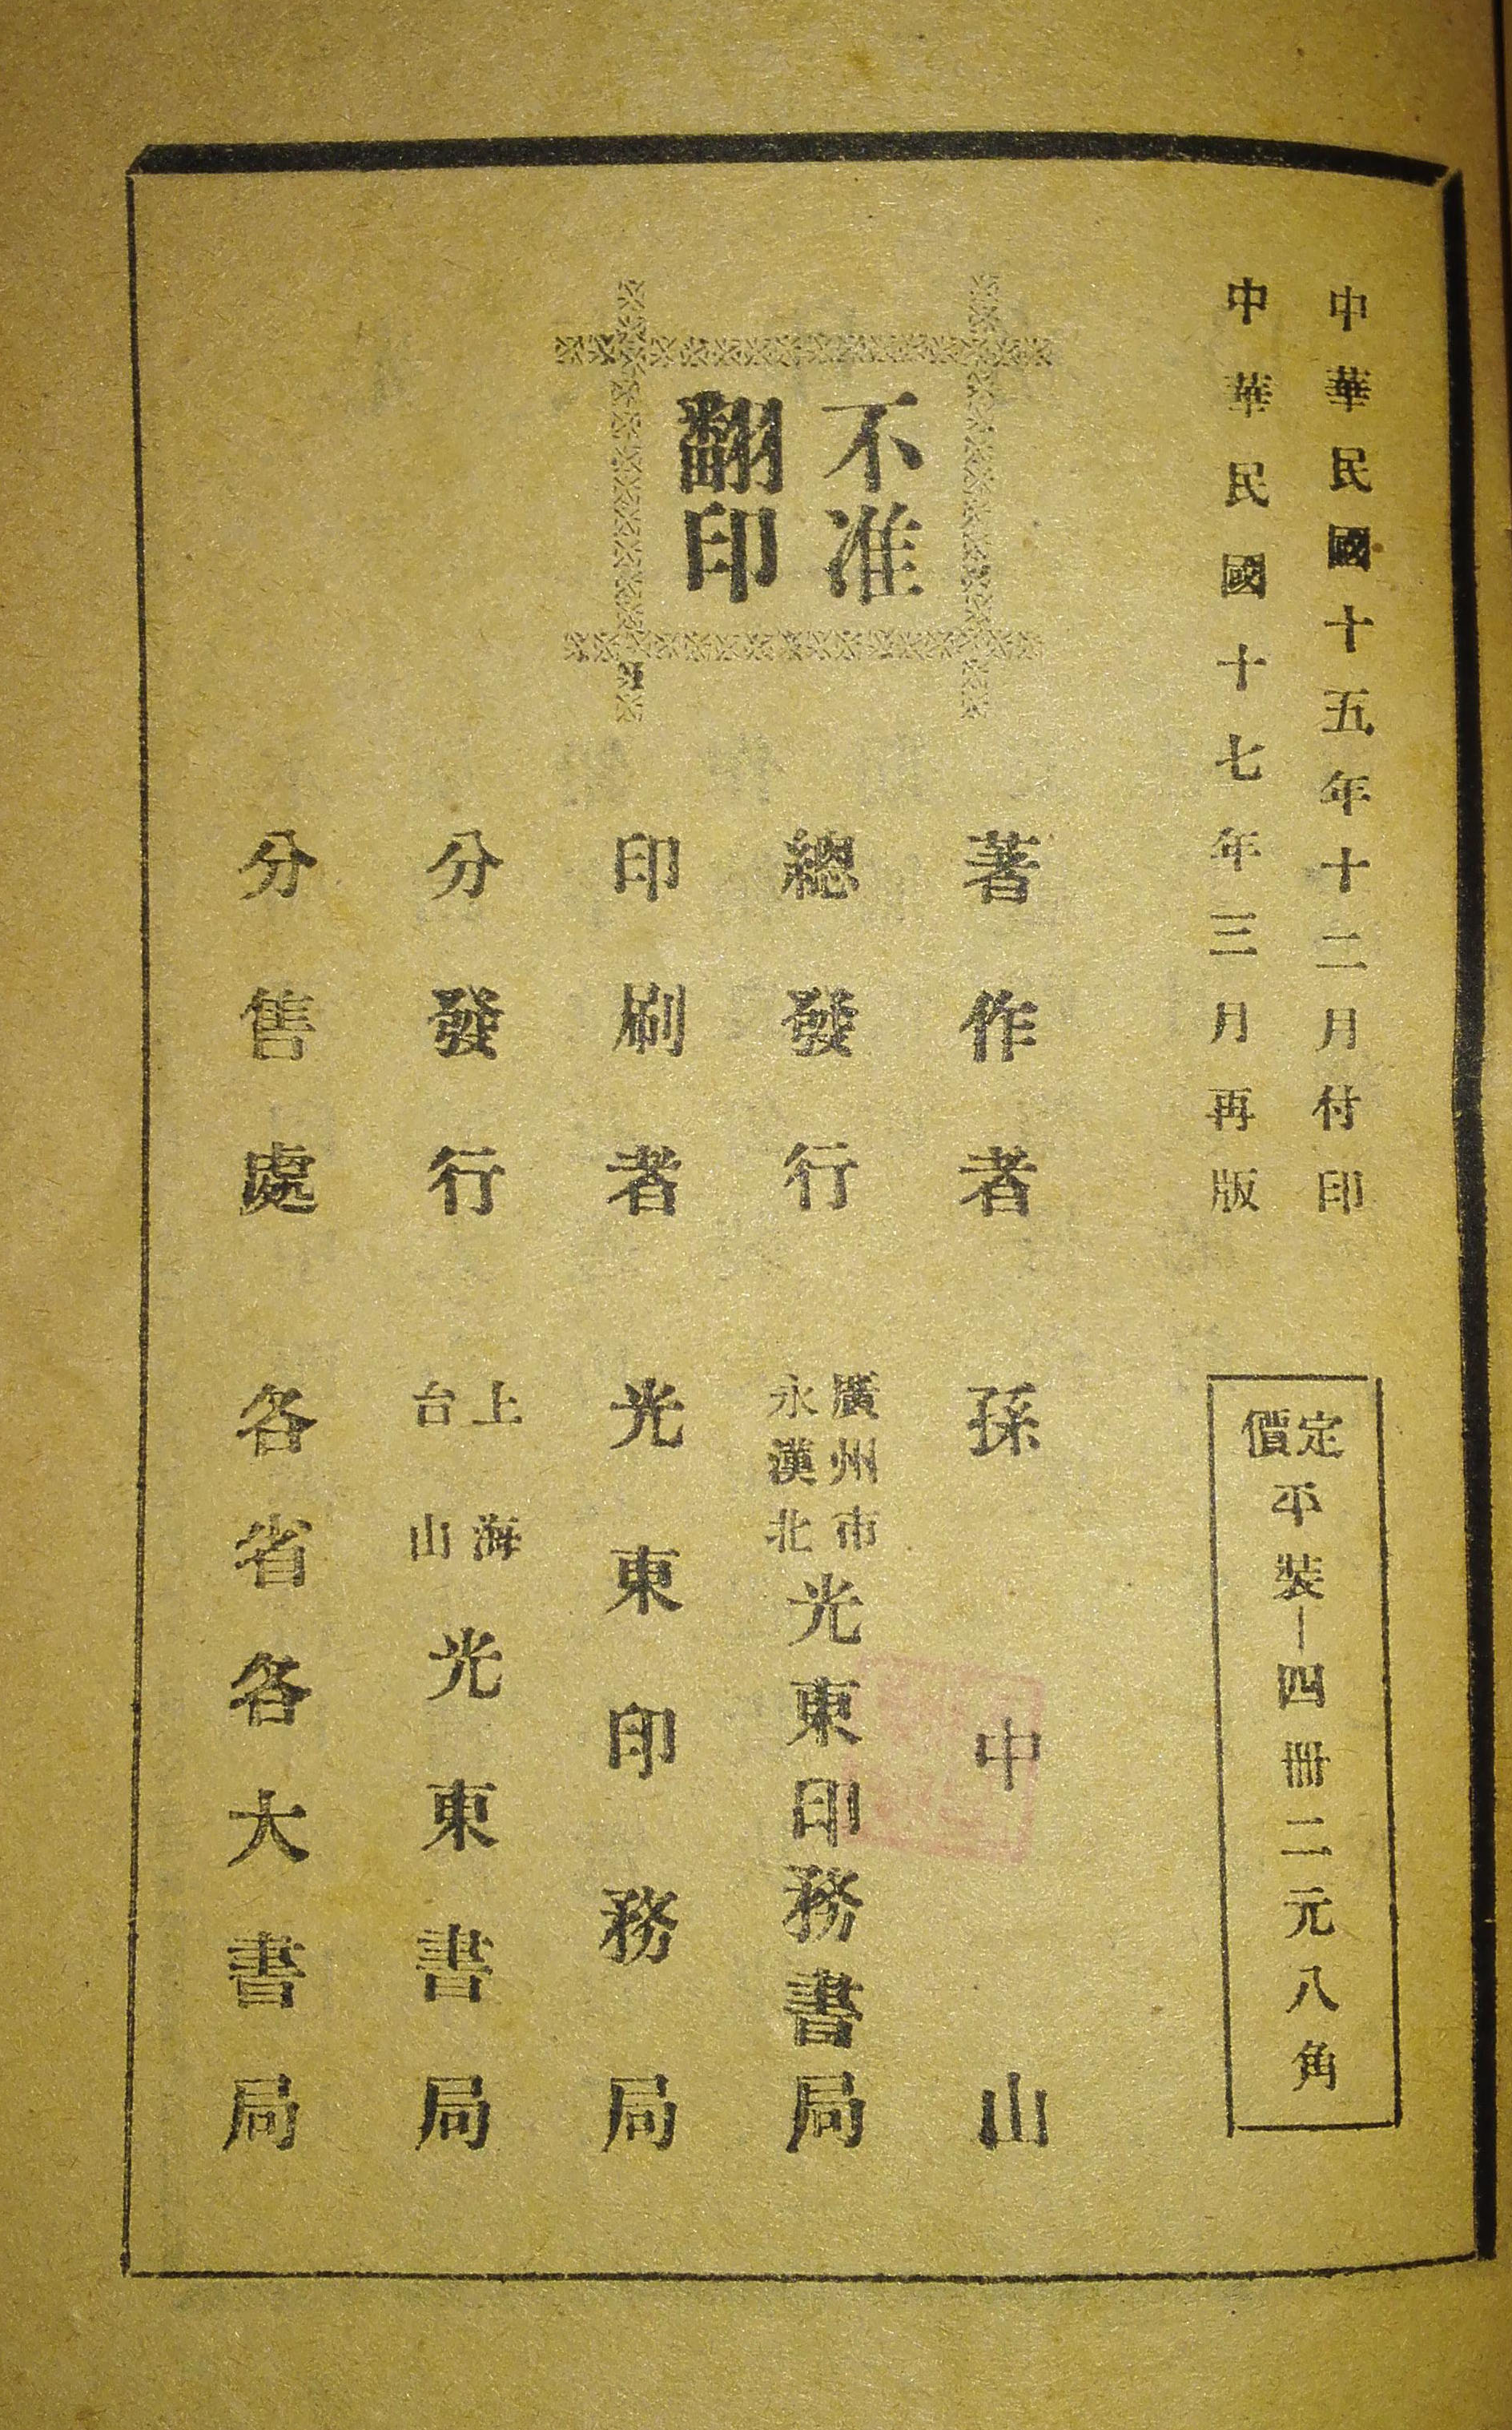 中華民國十五年十二月付印
中華民國十七年三月再版
定價
平裝—四冊二元八角
不准
翻印
著作者 孫中山
總發行 廣州市永漢北光東印務書局
印刷者 光東印務局
分發行 上海台山光東書局
分售處 各省各大書局